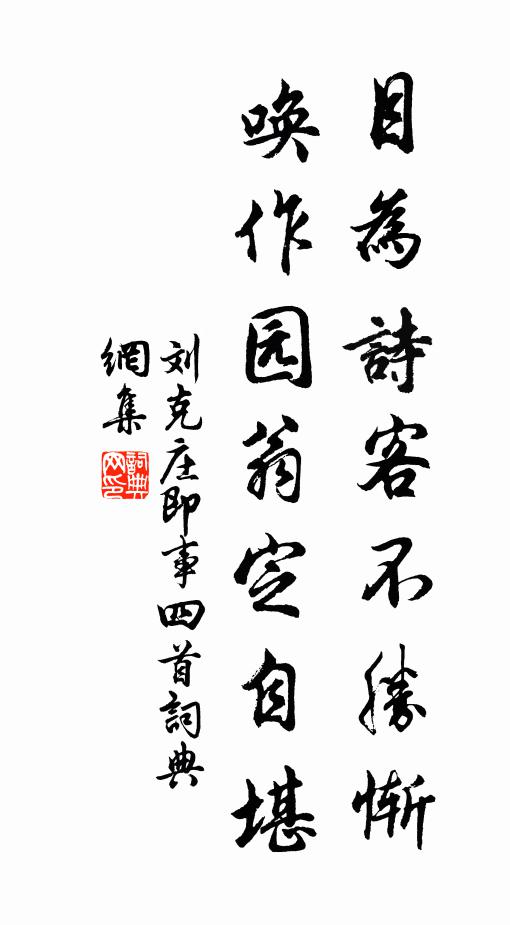 目為詩客不勝慚
喚作园翁定自堪
刘克庄即事四首詞典
網集
詞典
网印